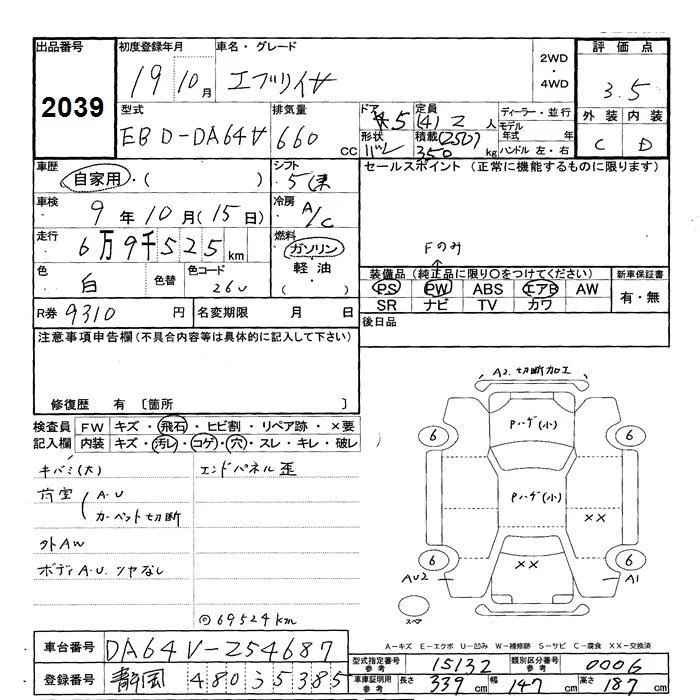 出品番号 初度登録年月 車名・グレード 2WD・4WD 評価点
2039 19 10月 エブリイ 3.5
型式 排気量 ドア 定員 ディーラー・並行 外装 内装
EBD-DA64V 660cc 5 (4) 2人 モデル年式 年 C D
形状 積載 (250) 350kg ハンドル 左・右
バン
車歴 シフト セールスポイント (正常に機能するものに限ります)
自家用・( ) 5速
車検 冷房
9年10月(15日) A/C
走行 燃料 Fのみ
6万9千525km ガソリン・軽油・( )
色 色替 色コード 装備品 (純正品に限り○をつけてください) 新車保証書
白 26U PS PW ABS エアB AW 有・無
SR ナビ TV カワ
R券 9310円 名変期限 月 日 後日品
注意事項申告欄 (不具合内容等は具体的に記入して下さい)
修復歴 有 〔箇所 〕
検査員 FW キズ・飛石・ヒビ割・リペア跡・×要
記入欄 内装 キズ・汚レ・コゲ・穴・スレ・キレ・破レ
キバミ(大) エンドパネル歪
荷室 A.U
カーペット切断
外AW
ボディA.U.ツヤなし
69524km
A2.切断加工
Pハゲ(小)
6 6
Pハゲ(小)
××
××
6 6
AU2 A1
スペア
A-キズ E-エクボ U-凹み W-補修跡 S-サビ C-腐食 XX-交換済
車台番号 DA64V-254687
登録番号 静岡 480 35385
型式指定番号 参考 15132 類別区分番号 参考 0006
車庫証明用 参考 長さ 339cm 幅 147cm 高さ 187cm